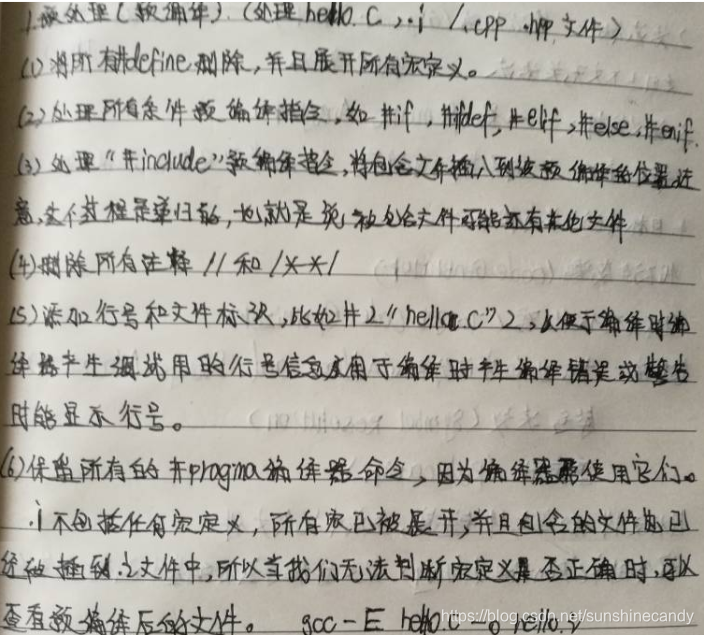 1.预处理(预编译).(处理 hello.c ,.i /.cpp .hpp 文件)
(1)将所有#define删除,并且展开所有宏定义。
(2)处理所有条件预编译指令,如 #if,#ifdef,#elif,#else,#enif.
(3)处理"#include"预编译指令,将包含文件插入到该预编译的位置,注
意,这个过程是递归的,也就是说被包含文件可能还有其他文件
(4)删除所有注释 // 和 /**/
(5)添加行号和文件标识,比如#2"hello.c"2,以便于编译时编
译器产生调试用的行号信息及用于编译时产生编译错误或警告
时能显示行号。
(6)保留所有的#pragma编译器命令,因为编译器要使用它们。
.i不包括任何宏定义,所有宏已被展开,并且包含的文件也已
经被插到.i文件中,所以当我们无法判断宏定义是否正确时,可以
查看预编译后的文件。 gcc -E hello.c -o hello.i
https://blog.csdn.net/sunshinecandy